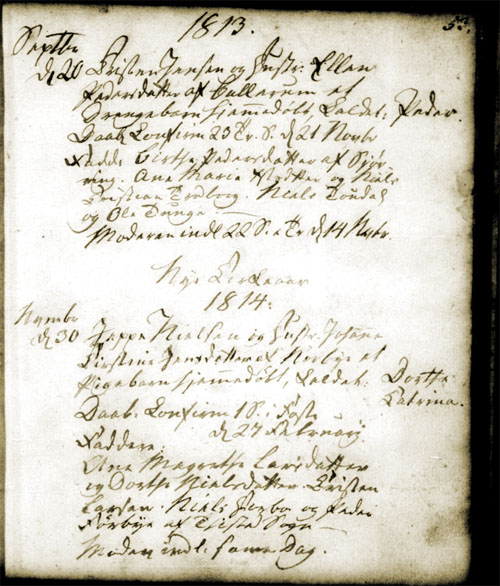 1813.
Septbr
d 20 Cristen Jensen og Hustr: Ellen
Pedersdatter af Ballerum et
Drengebarn hjemmedøbt, kaldet: Peder.
Daab Confirm 23 Tr. S. d 21 Novbr
Fadd: Birthe Pedersdatter af Sjør-
ring. Ane Marie og Niels
Christian Niels
og Ole Bunge
Moderen indl 22 S. e Tr d 14 Nvbr.
Nye Kirkeaar
1814.
Nvmbr
d 30 Jeppe Nielsen og Hustr. Johanne
Kirstine Jensdatter af Norbye et
Pigebarn hjemmedøbt, kaldet: Dorthe
Catrina.
Daab. Confirm 1 S. i Faste
d 27 Februarj.
Faddere:
Ane Magrethe Larsdatter
og Dorthe Nielsdatter. Cristen
Larsen. Niels og Peder
af Tisted Sogn
Moder indl: samme Dag.